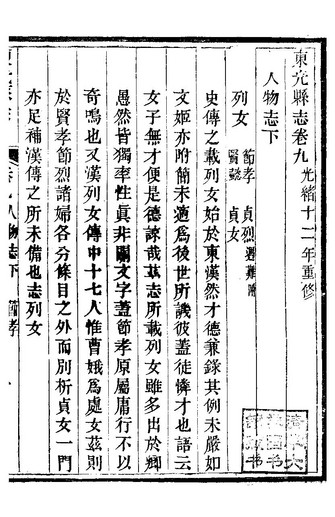 東光縣志卷九 光緒十二年重修
人物志下
列女 節孝 貞烈遇難附
賢懿 貞女
史傳之載列女始於東漢然才德兼錄其例未嚴如
文姬亦附簡末適為後世所譏彼蓋徒憐才也語云
女子無才便是德諒哉茲志所載列女雖多出於鄉
愚然皆獨率性真非關文字蓋節孝原屬庸行不以
奇鳴也又漢列女傳中十七人惟曹娥為處女茲則
於賢孝節烈諸婦各分條目之外而別析貞女一門
亦足補漢傳之所未備也志列女
卷九人物志下 節孝